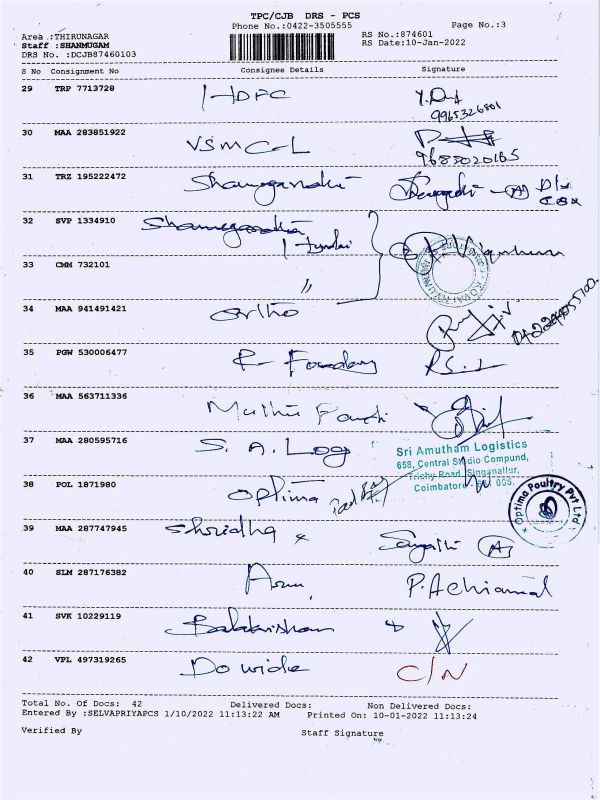 TPC/CJB DRS - PCS
Phone No.:0422-3505555
Page No.:3
Area :THIRUNAGAR
RS No.:874601
Staff :SHANMUGAM
RS Date:10-Jan-2022
DRS No. :DCJB87460103
S No Consignment No Consignee Details Signature
29 TRP 7713728 HDFC
9965326801
30 MAA 283851922 VSMC-L
9688020165
31 TRZ 195222472
32 SVP 1334910
33 CMM 732101 "
34 MAA 941491421 Ortho
35 PGW 530006477 R Foundary
36 MAA 563711336 Muthu
37 MAA 280595716 S. A. Log
Sri Amutham Logistics
658, Central Studio Compund,
Trichy Road, Singanallur,
Coimbatore - 641 005.
38 POL 1871980 Optima
* Optima Poultry Pvt Ltd *
39 MAA 287747945 Shridha
40 SLM 287176382 Arun P.Achiamal
41 SVK 10229119 Balakrishnan
42 VPL 497319265 Do wide C/N
Total No. Of Docs: 42 Delivered Docs: Non Delivered Docs:
Entered By :SELVAPRIYAPCS 1/10/2022 11:13:22 AM Printed On: 10-01-2022 11:13:24
Verified By Staff Signature